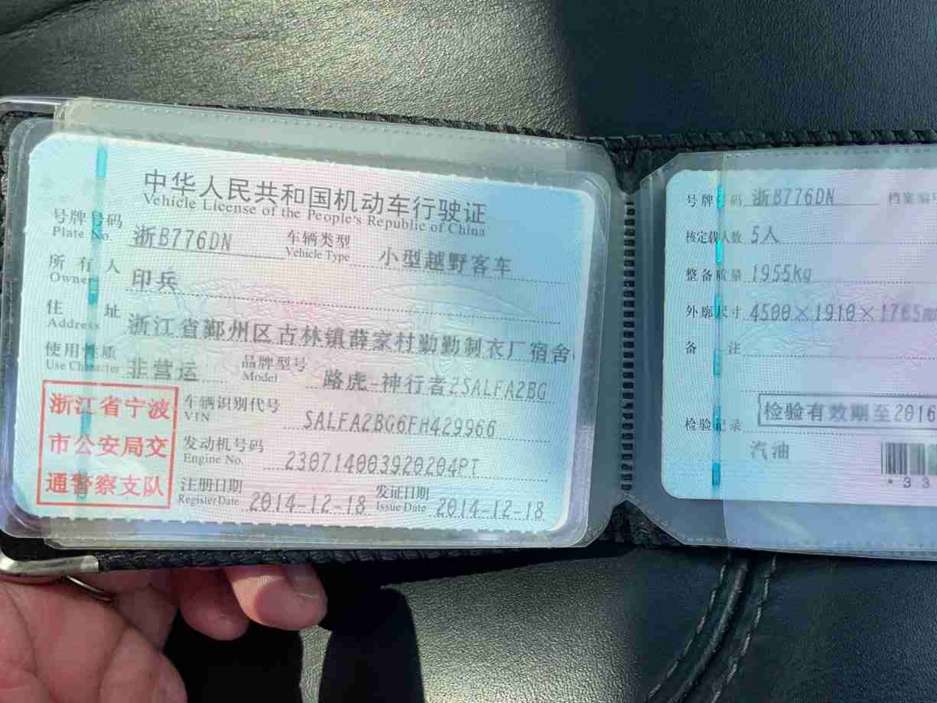 中华人民共和国机动车行驶证
Vehicle License of the People's Republic of China
号牌号码 浙B776DN 车辆类型 小型越野客车
Plate No. Vehicle Type
所有人 印兵
Owner
住址 浙江省鄞州区古林镇薛家村勤勤制衣厂宿舍
Address
使用性质 非营运 品牌型号 路虎-神行者2SALFA2BG
Use Character Model
浙江省宁波
市公安局交
通警察支队
车辆识别代号 SALFA2BG6FH429966
VIN
发动机号码 230714003920204PT
Engine No.
注册日期 2014-12-18 发证日期 2014-12-18
Register Date Issue Date
号牌号码 浙B776DN 档案编
核定载人数 5人
整备质量 1955kg
外廓尺寸 4500×1910×1765
备注
检验有效期至2016
检验记录
汽油
*33